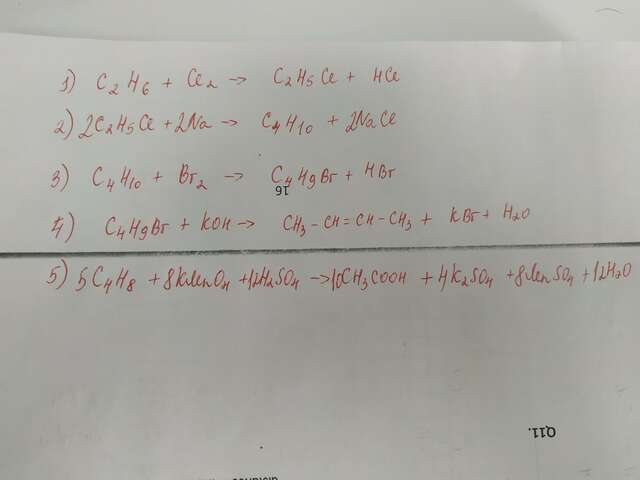 1) C2H6 + Cl2 → C2H5Cl + HCl
2) 2C2H5Cl + 2Na → C4H10 + 2NaCl
3) C4H10 + Br2 → C4H9Br + HBr
16
4) C4H9Br + KOH → CH3-CH=CH-CH3 + KBr + H2O
5) 5C4H8 + 8KMnO4 + 12H2SO4 → 10CH3COOH + 4K2SO4 + 8MnSO4 + 12H2O
Q11.